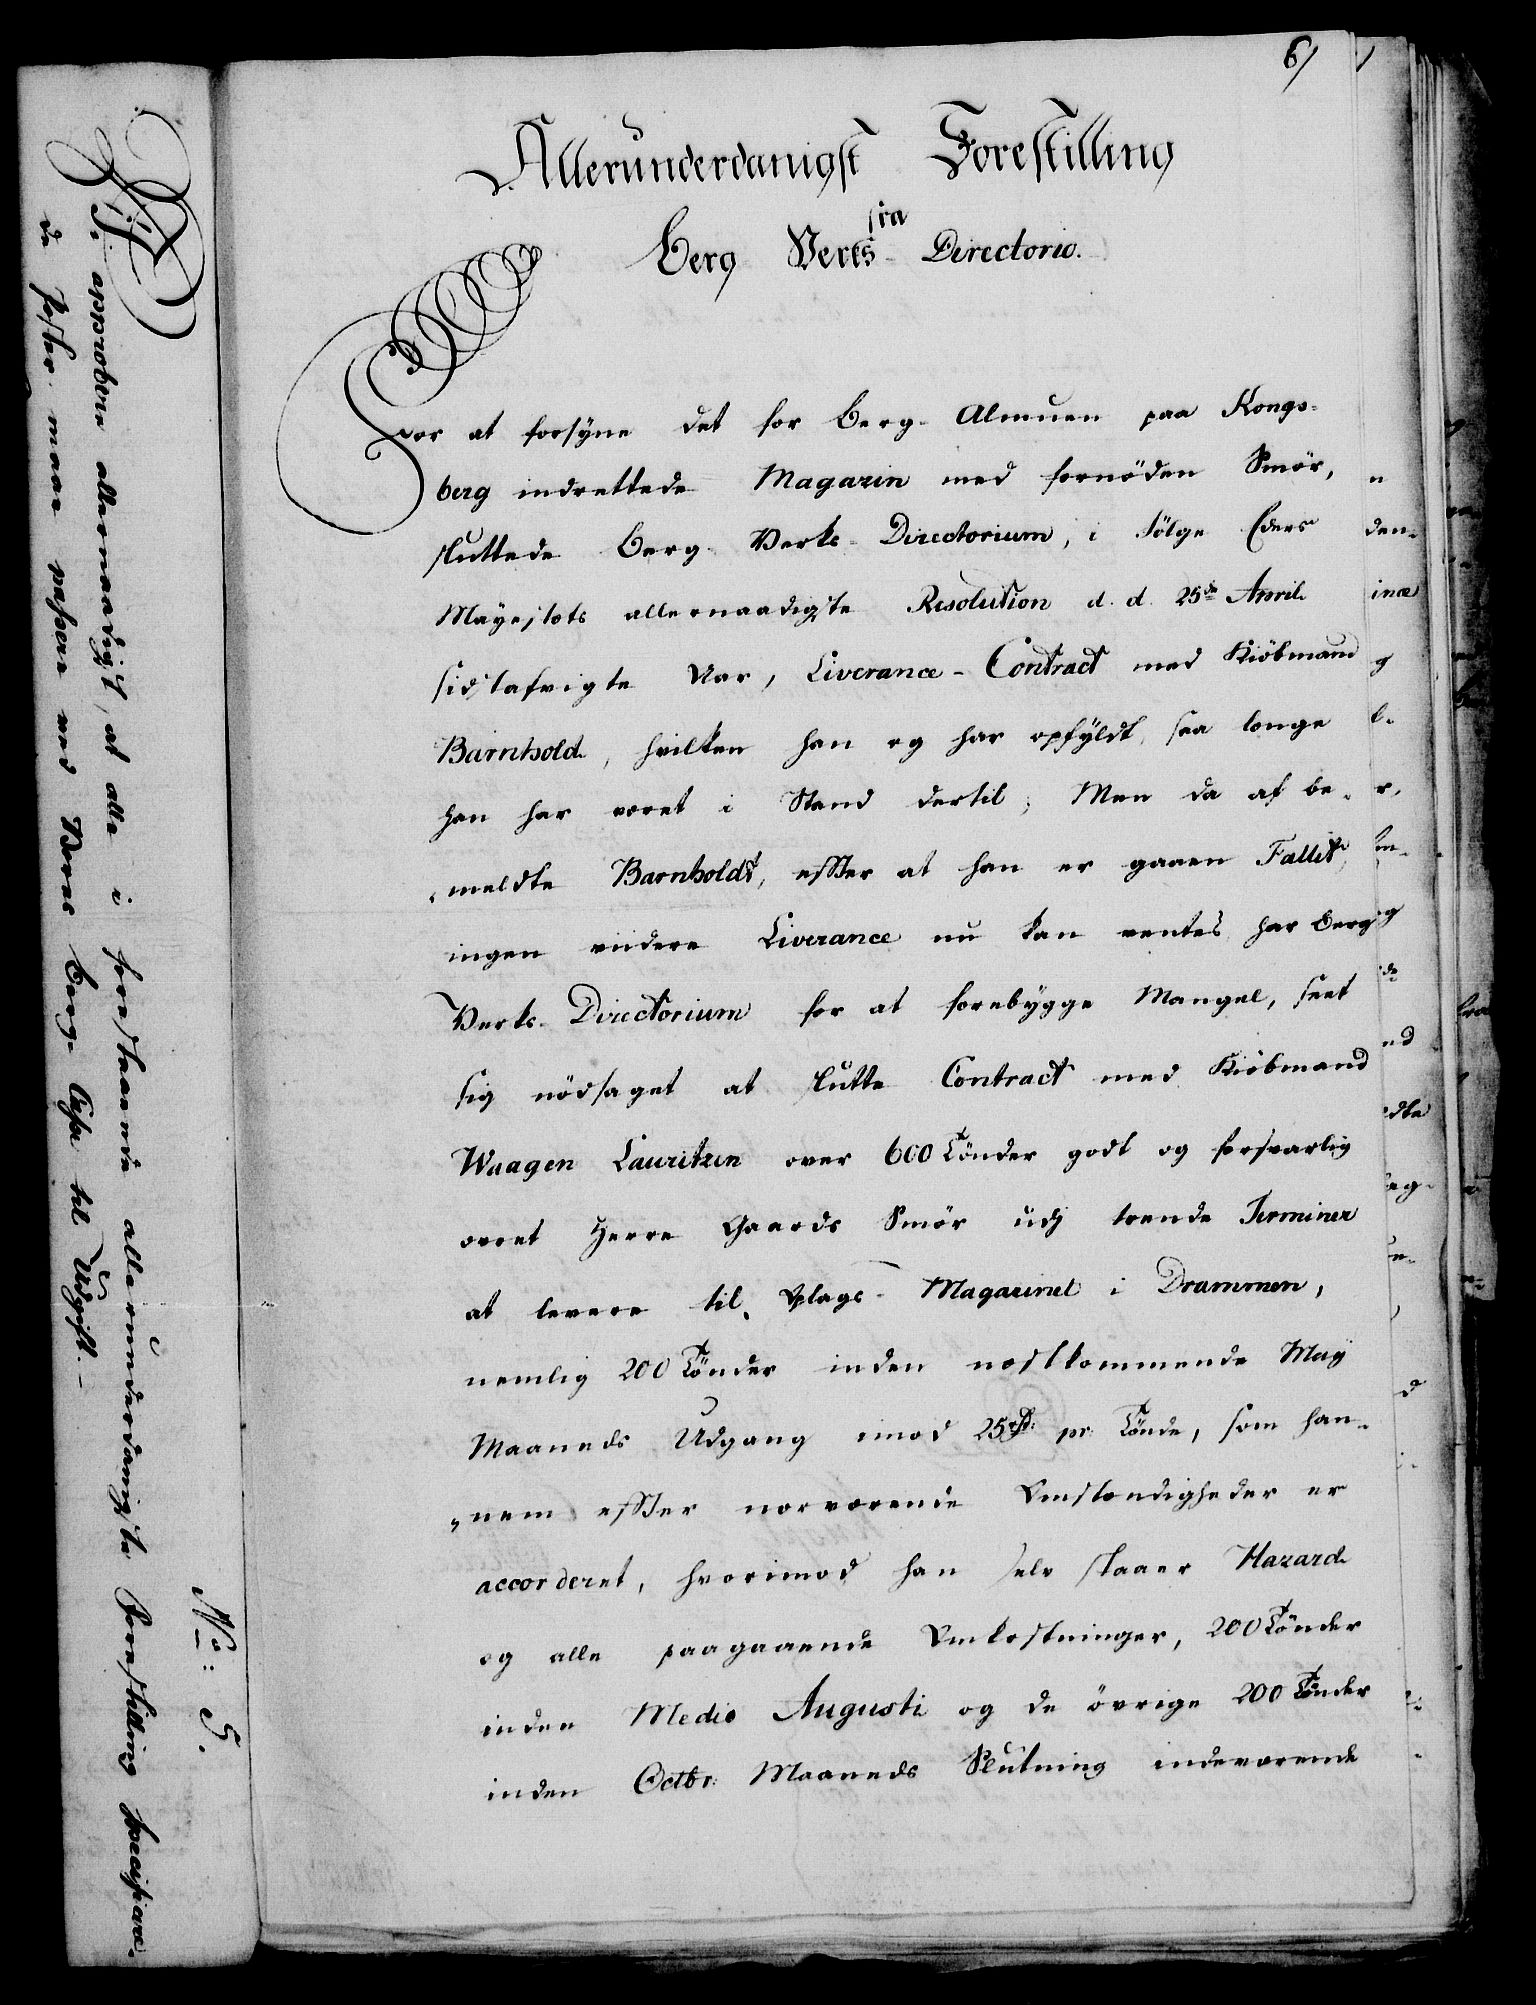 6/
Allerunderdanigst Forestilling
fra
Berg Verks-Directorio.
For at forsyne det for Berg-Almuen paa Kongs-
berg indrettede Magazin med fornöden Smör,
sluttede Berg-Verks-Directorium, i Fölge Eders
Mayestæts allernaadigste Resolution d. d. 25de April
sidstafvigte Aar, Liverance-Contract med Kiöbmand
Barnhold, hvilken han og har opfyldt, saa længe
han har været i Stand dertil; Men da af be-
meldte Barnholdt, efter at han er gaaen Fallit,
ingen viidere Liverance nu kan ventes har Berg
Verks-Directorium for at forebygge Mangel, seet
sig nödsaget at slutte Contract med Kiöbmand
Waagen Lauritzen over 600 Tönder godt og forsvarlig
været Herre Gaards Smör udj trende Terminer
at levere til Oplags-Magazinet i Drammen,
nemlig 200 Tönder inden næstkommende May
Maaneds Udgang imod 25 rd: pr: Tönde, som han-
nem efter nærværende Omstændigheder er
accorderet, hvorimod han selv staaer Hazard
og alle paagaaende Omkostninger, 200 Tönder
inden Medio Augusti og de övrige 200 Tönder
inden Octbr: Maaneds Slutning indeværende
No: 5.
Vi approbere allernaadigst, at alle i forestaaende allerunderdanigste Forestilling specificere-
de Poster maae passere ved Vores Berg-Casse til Udgift.-